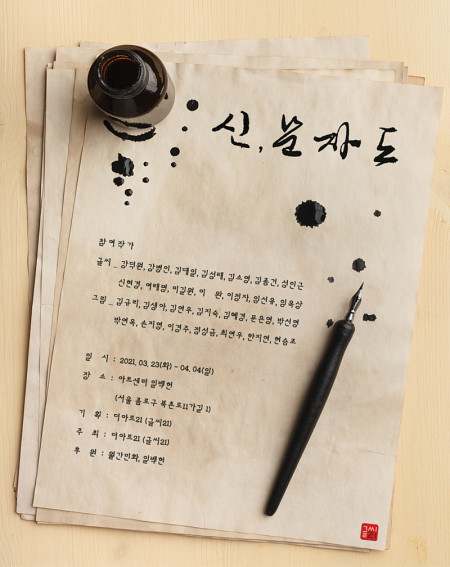 신, 문자도
참여작가
글씨 _ 강덕원, 강병인, 김태일, 김성태, 김소영, 김종건, 성인근
신현경, 여태명, 이길원, 이 완, 이정자, 임선유, 임옥상
그림 _ 김규리, 김생아, 김연우, 김지숙, 김혜경, 문은영, 박선영
박연옥, 손지영, 이경주, 정성금, 최연우, 한지연, 현승조
일 시 : 2021. 03. 23(화) - 04. 04(일)
장 소 : 아트센터 일백헌
(서울 종로구 북촌로11가길 1)
기 획 : 더아트21 (글씨21)
주 최 : 더아트21 (글씨21)
후 원 : 월간민화, 일백헌
글씨21